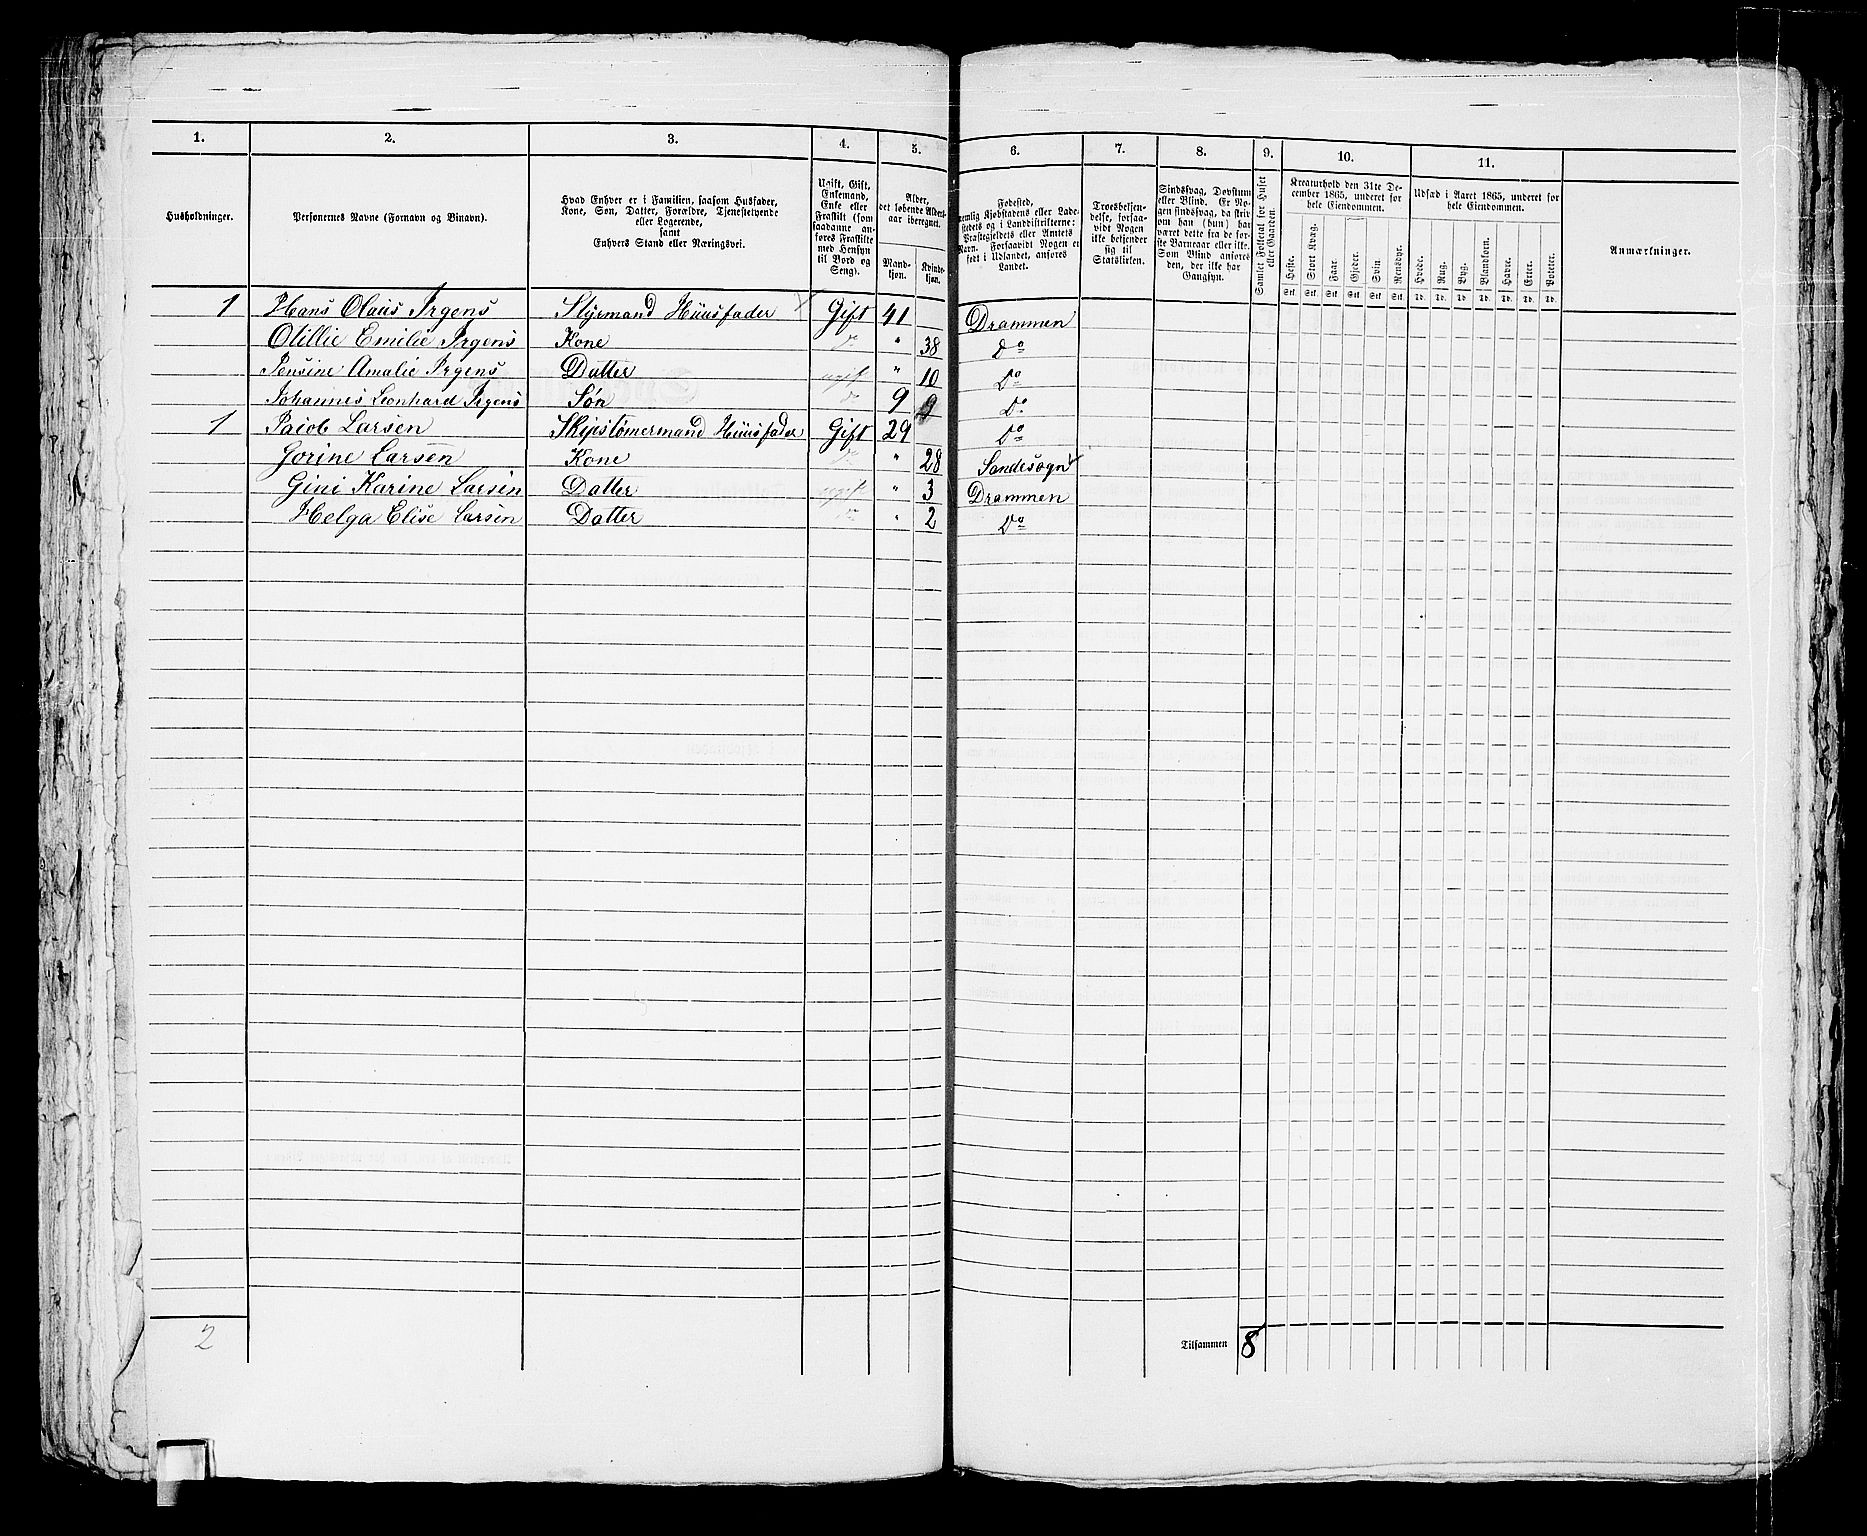 1. 2. 3. 4. 5. 6. 7. 8. 9. 10. 11.
Husholdninger.
Personernes Navne (Fornavn og Binavn).
Hvad Enhver er i Familien, saasom Husfader,
Kone, Søn, Datter, Forældre, Tjenestetyende
eller Logerende,
samt
Enhvers Stand eller Næringsvei.
Ugift, Gift,
Enkemand,
Enke eller
Fraskilt (som
saadanne an-
føres Fraskilte
med Hensyn
til Bord og
Seng).
Alder,
det løbende Alders-
aar iberegnet.
Mand-
kjøn.
Kvinde-
kjøn.
Fødested,
nemlig Kjøbstadens eller Lade-
stedets og i Landdistrikterne:
Præstegjeldets eller Amtets
Navn. Forsaavidt Nogen er
født i Udlandet, anføres
Landet.
Troesbekjen-
delse, forsaa-
vidt Nogen
ikke bekjender
sig til
Statskirken.
Sindssvag, Døvstum
eller Blind. Er No-
gen sindssvag, da skriv
om han (hun) har
været dette fra de før-
ste Barneaar eller ikke.
Som Blind anføres
den, der ikke har
Gangsyn.
Samlet Folketal for Huset
eller Gaarden.
Kreaturhold den 31te De-
cember 1865, underet for
hele Eiendommen.
Heste. Stort Kvæg. Faar. Gjeder. Svin. Rensdyr.
Stk. Stk. Stk. Stk. Stk. Stk.
Udsæd i Aaret 1865, underet for
hele Eiendommen.
Hvede. Rug. Byg. Blandkorn. Havre. Erter. Poteter.
Td. Td. Td. Td. Td. Td. Td.
Anmærkninger.
1 Hans Olaus Irgens Styrmand Huusfader Gift 41 Drammen
Olillie Emilie Irgens Kone do " 38 Do
Jensine Amalie Irgens Datter ugift " 10 Do
Johannes Leonhard Irgens Søn do 9 Do
1 Jacob Larsen Skipstømermand Huusfader Gift 29 Do
Gorine Larsen Kone do " 28 Sandesogn
Gini Karine Larsen Datter ugift " 3 Drammen
Helga Elise Larsen Datter do " 2 Do
2 Tilsammen 8